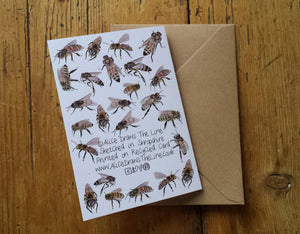 ©Alice Draws The Line
Sketched in Shropshire
Printed on Recycled Card
www.AliceDrawsTheLine.co.uk